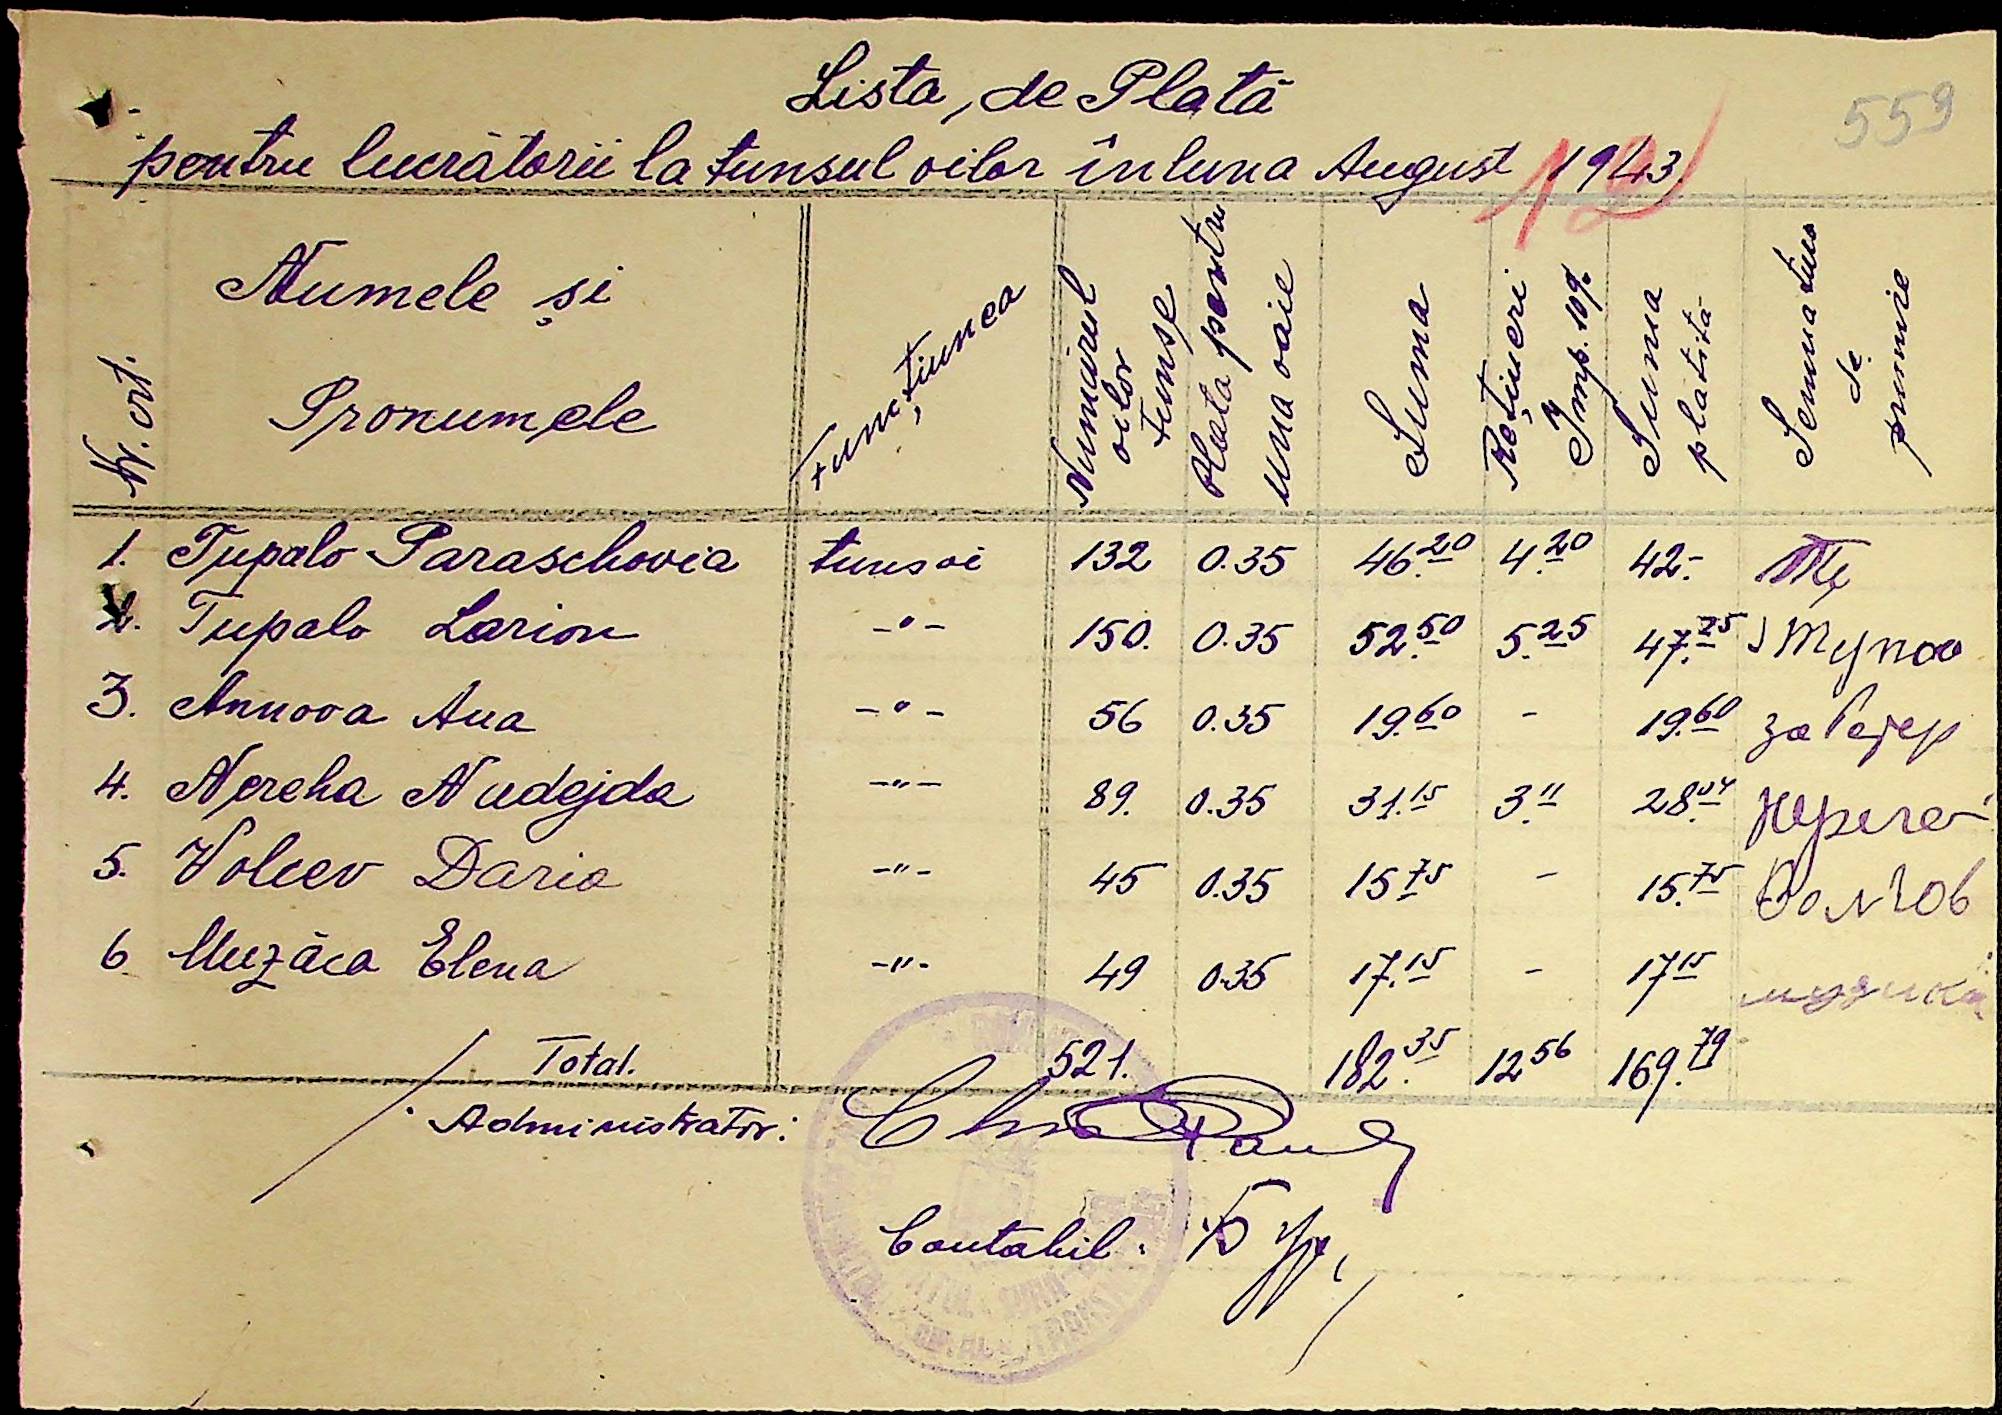 559
Lista, de Plată
pentru lucrătorii la tunsul oilor în luna August 1943
12
Nr. crt. Numele și Pronumele Funcțiunea Numărul oilor tunse Plata pentru una oaie Suma Rețineri Imp. 10% Suma platită Semnatura de primire
1. Tupalo Paraschovia tuns oi 132 0.35 46.20 4.20 42.-
2. Tupalo Larion -"- 150. 0.35 52.50 5.25 47.25 Тупоо
3. Annova Ana -"- 56 0.35 19.60 - 19.60
4. Nereha Nudejda -"- 89. 0.35 31.15 3.11 28.04
5. Volcev Daria -"- 45 0.35 15.75 - 15.75 Волчов
6 Muzăca Elena -"- 49 0.35 17.15 - 17.15 музика
Total. 521. 182.35 12.56 169.79
Administrator:
Contabil: